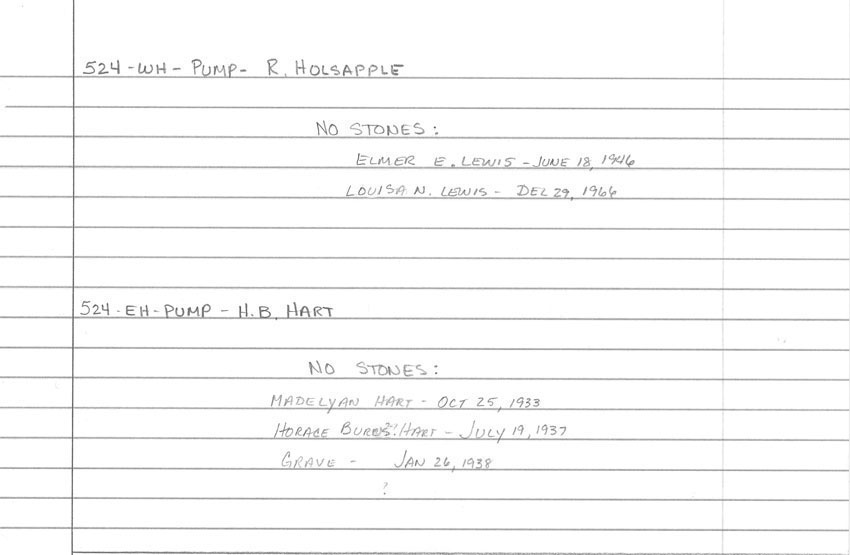 524-WH- PUMP- R. HOLSAPPLE
NO STONES:
ELMER E. LEWIS - JUNE 18, 1946
LOUISA N. LEWIS - DEC 29, 1966
524-EH-PUMP - H.B. HART
NO STONES:
MADELYAN HART - OCT 25, 1933
HORACE HART - JULY 19, 1937
GRAVE - JAN 26, 1938
?